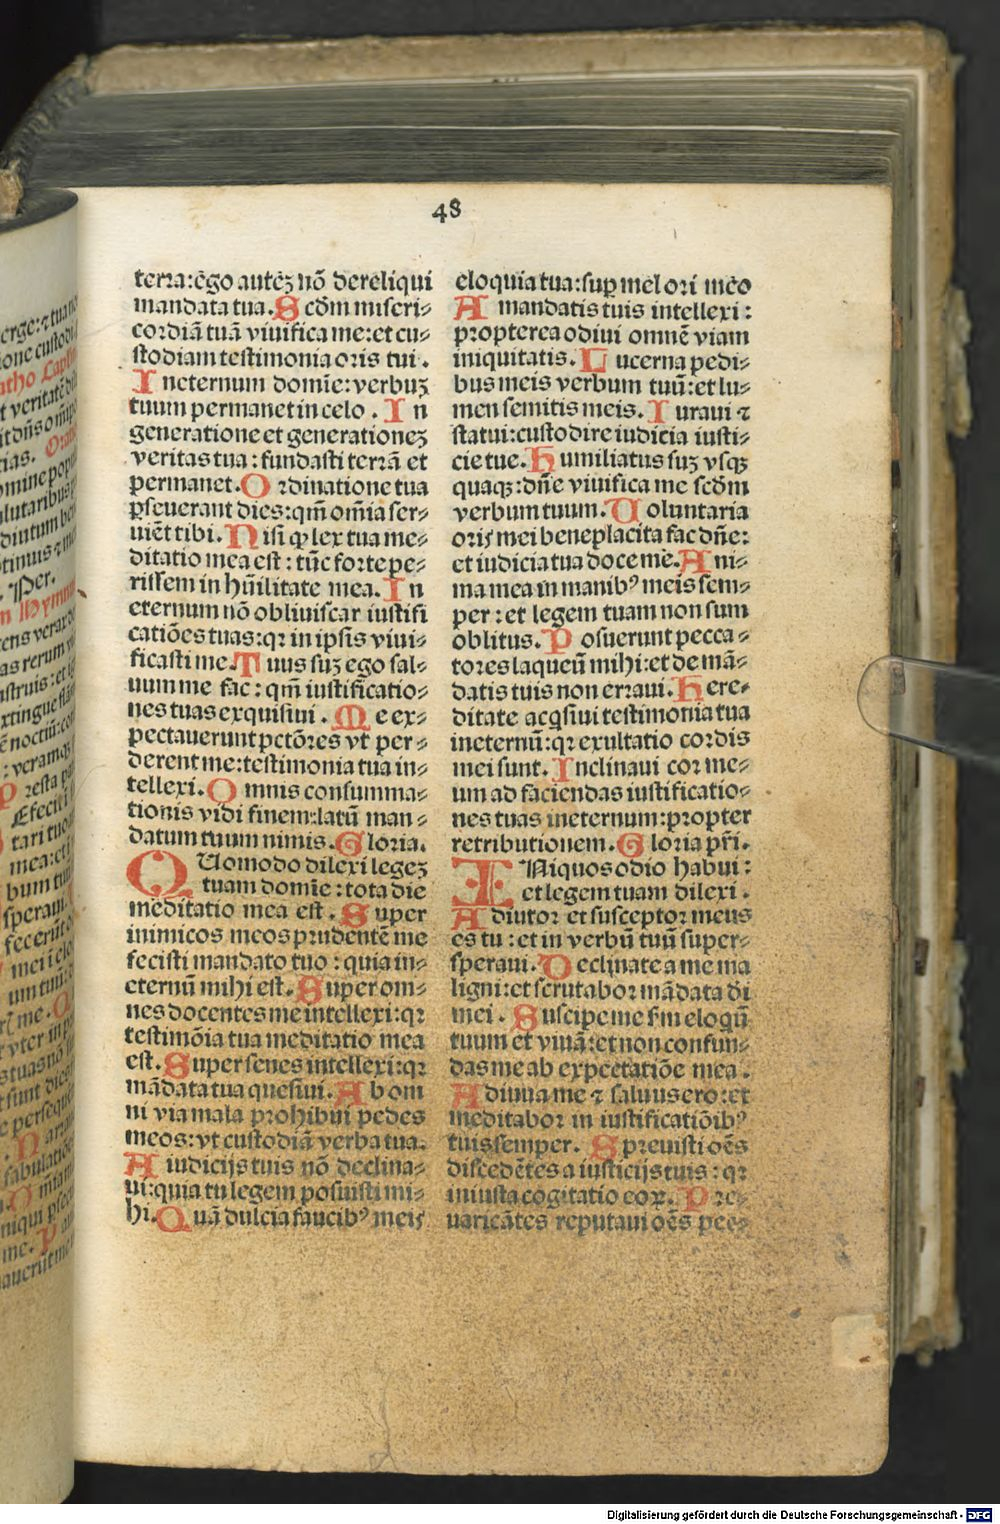 48
terra:ego autēꝫ nō dereliqui
mandata tua. S cōm miseri⸗
cordiā tuā viuifica me:et cu⸗
stodiam testimonia oris tui.
I neternum domīe:verbuꝫ
tuum permanet in celo. I n
generatione et generationeꝫ
veritas tua: fundasti terrā et
permanet. O rdinatione tua
ꝑseuerant dies:qm̄ om̄ia ser⸗
uiēt tibi. N isi ꝙ lex tua me⸗
ditatio mea est: tūc forte pe⸗
rissem in hūilitate mea. I n
eternum nō obliuiscar iustifi
catiōes tuas:qꝛ in ipsis viui⸗
ficasti me. T uus suꝫ ego sal⸗
uum me fac: qm̄ iustificatio⸗
nes tuas exquisiui. M e ex⸗
pectauerunt pctōres vt per⸗
derent me:testimonia tua in⸗
tellexi. O mnis consumma⸗
tionis vidi finem:latū man⸗
datum tuum nimis. G loria.
Q Uomodo dilexi legeꝫ
tuam domīe: tota die
meditatio mea est. S uper
inimicos meos prudentē me
fecisti mandato tuo: quia in⸗
eternū mihi est. S uper om⸗
nes docentes me intellexi:qꝛ
testimōia tua meditatio mea
est. S uper senes intellexi:qꝛ
mādata tua quesiui. A b om
ni via mala prohibui pedes
meos:vt custodiā verba tua.
A iudicijs tuis nō declina⸗
ui:quia tu legem posuisti mi⸗
hi. Q uā dulcia faucibꝰ meis
eloquia tua:suꝑ mel ori meo
A mandatis tuis intellexi:
propterea odiui omnē viam
iniquitatis. L ucerna pedi⸗
bus meis verbum tuū:et lu⸗
men semitis meis. I uraui ⁊
statui:custodire iudicia iusti⸗
cie tue. H umiliatus suꝫ vsqꝫ
quaqꝫ:dn̄e viuifica me scd̄m
verbum tuum. U oluntaria
oris mei beneplacita fac dn̄e:
et iudicia tua doce me. A ni⸗
ma mea in manibꝰ meis sem⸗
per: et legem tuam non sum
oblitus. P osuerunt pecca⸗
tores laqueū mihi:et de mā⸗
datis tuis non erraui. H ere⸗
ditate acq̄siui testimonia tua
ineternū:qꝛ exultatio cordis
mei sunt. I nclinaui cor me⸗
um ad faciendas iustificatio⸗
nes tuas ineternum:propter
retributionem. G loria pr̄i.
I Niquos odio habui:
et legem tuam dilexi.
A diutor et susceptor meus
es tu: et in verbū tuū super⸗
speraui. D eclinate a me ma
ligni:et scrutabor mādata di
mei. S uscipe me s̄m eloqū
tuum et viuā:et non confun⸗
das me ab expectatiōe mea.
A diuua me ⁊ saluus ero:et
meditabor in iustificatiōibꝰ
tuis semper. S preuisti oēs
discedētes a iusticijs tuis: qꝛ
iniusta cogitatio eoꝝ. P re⸗
uaricātes reputaui oēs pec⸗
Digitalisierung gefördert durch die Deutsche Forschungsgemeinschaft - DFG